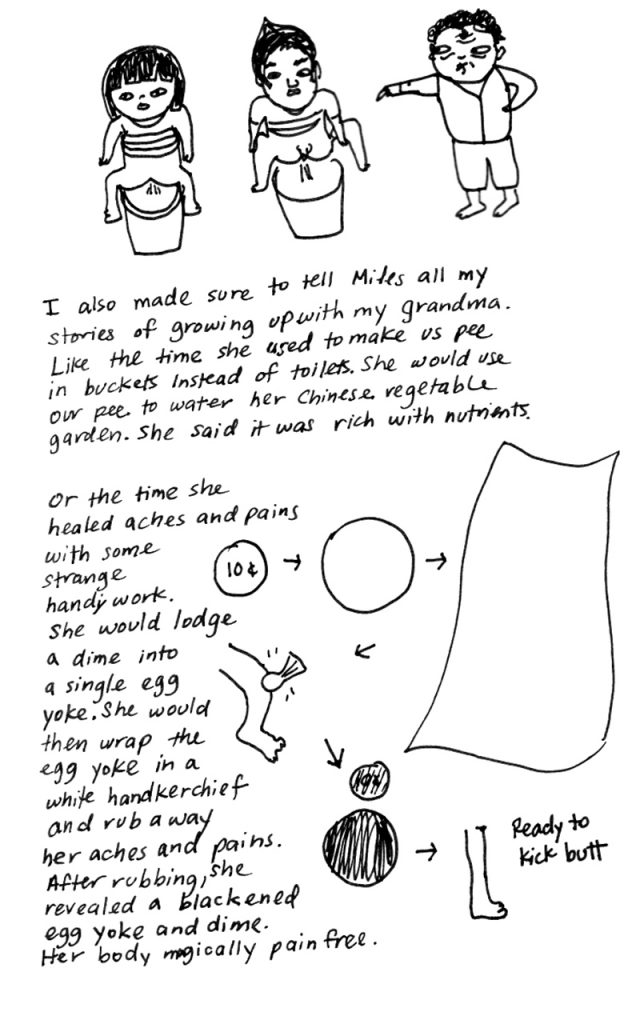 I also made sure to tell Miles all my
stories of growing up with my grandma.
Like the time she used to make us pee
in buckets instead of toilets. She would use
our pee to water her Chinese vegetable
garden. She said it was rich with nutrients.
Or the time she
healed aches and pains
with some
strange
handy work.
She would lodge
a dime into
a single egg
yoke. She would
then wrap the
egg yoke in a
white handkerchief
and rub away
her aches and pains.
After rubbing, she
revealed a blackened
egg yoke and dime.
Her body magically pain free.
10¢
10¢
Ready to
kick butt